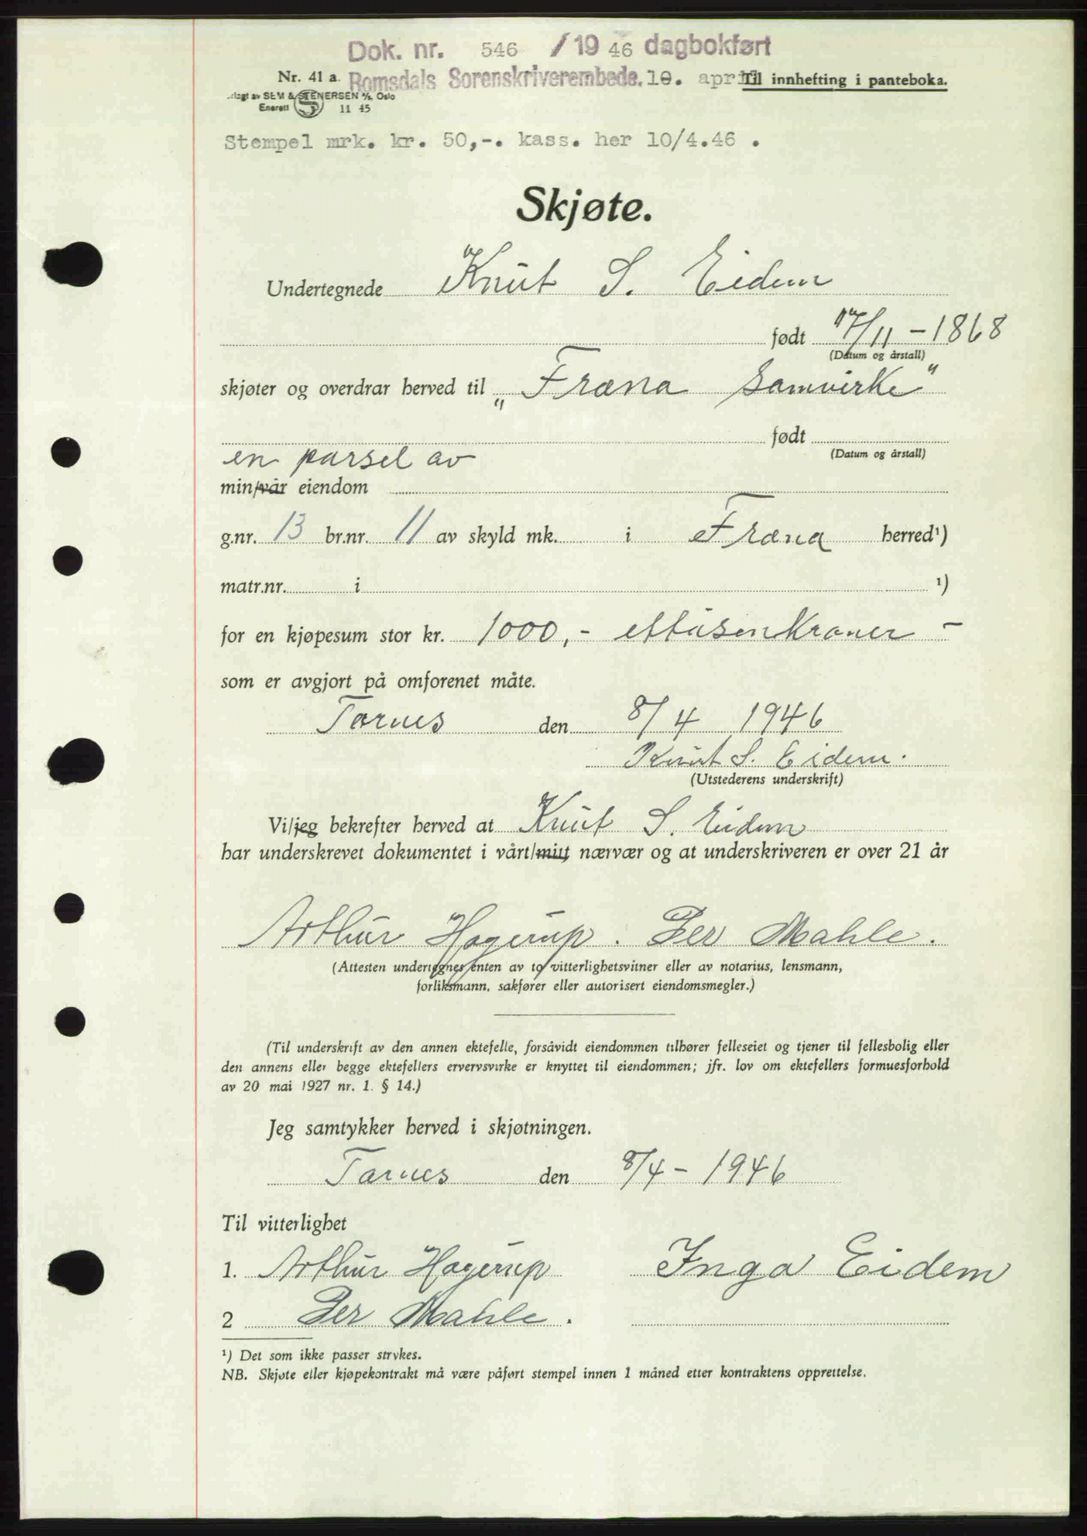 Dok. nr. 546 /19 46 dagbokført
Nr. 41 a. Romsdals Sorenskriverembede. 10. april Til innhefting i panteboka.
SEM & STENERSEN A/S, Oslo
Enerett 11 45
Stempel mrk. kr. 50,-. kass. her 10/4.46 .
Skjøte.
Undertegnede Knut S. Eidem
født 17/11 - 1868
(Datum og årstall)
skjøter og overdrar herved til „Fræna Samvirke"
født
(Datum og årstall)
en parsel av
min/vår eiendom
g.nr. 13 br.nr. 11 av skyld mk. i Fræna herred¹)
matr.nr. i ¹)
for en kjøpesum stor kr. 1000,- ettusen Kroner -
som er avgjort på omforenet måte.
Tornes den 8/4 1946
Knut S. Eidem.
(Utstederens underskrift)
Vi/jeg bekrefter herved at Knut S. Eidem
har underskrevet dokumentet i vårt/mitt nærvær og at underskriveren er over 21 år
Arthur Hagerup. Per Mahle.
(Attesten undertegnes enten av to vitterlighetsvitner eller av notarius, lensmann,
forliksmann, sakfører eller autorisert eiendomsmegler.)
(Til underskrift av den annen ektefelle, forsåvidt eiendommen tilhører felleseiet og tjener til fellesbolig eller
den annens eller begge ektefellers ervervsvirke er knyttet til eiendommen; jfr. lov om ektefellers formuesforhold
av 20 mai 1927 nr. 1. § 14.)
Jeg samtykker herved i skjøtningen.
Tornes den 8/4 - 1946
Til vitterlighet
1. Arthur Hagerup Inga Eidem
2 Per Mahle.
¹) Det som ikke passer strykes.
NB. Skjøte eller kjøpekontrakt må være påført stempel innen 1 måned etter kontraktens opprettelse.